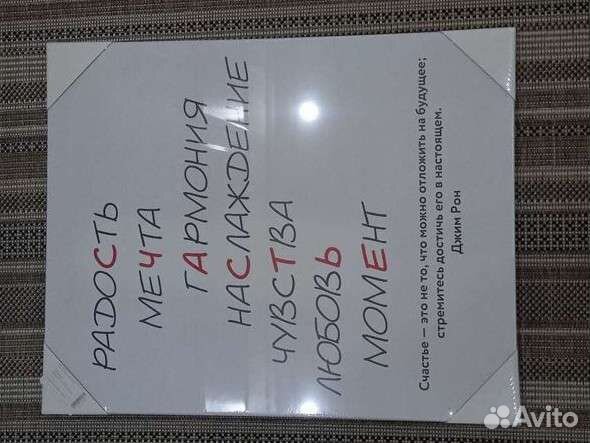 РАДОСТЬ
МЕЧТА
ГАРМОНИЯ
НАСЛАЖДЕНИЕ
ЧУВСТВА
ЛЮБОВЬ
МОМЕНТ
Счастье — это не то, что можно отложить на будущее;
стремитесь достичь его в настоящем.
Джим Рон
Avito